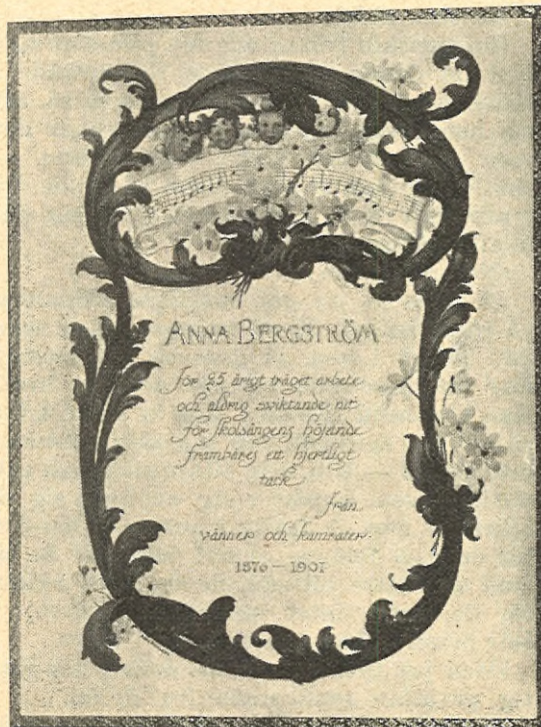 ANNA BERGSTRÖM
för 25 årigt träget arbete
och aldrig swiktande nit
för skolsångens höjande
frambäres ett hjertligt
tack
från
vänner och kamrater.
1876 — 1901